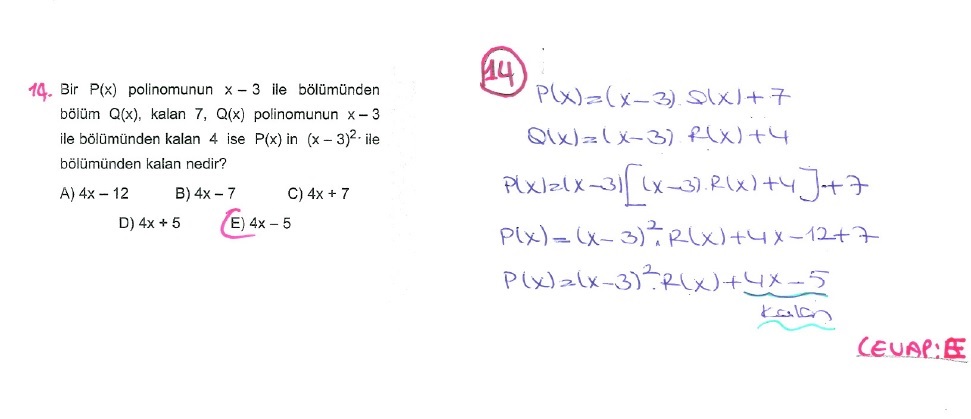 14. Bir P(x) polinomunun x – 3 ile bölümünden
bölüm Q(x), kalan 7, Q(x) polinomunun x – 3
ile bölümünden kalan 4 ise P(x) in (x – 3)². ile
bölümünden kalan nedir?
A) 4x – 12 B) 4x – 7 C) 4x + 7
D) 4x + 5 E) 4x – 5
14
P(x)=(x–3).Q(x)+7
Q(x)=(x–3).R(x)+4
P(x)=(x–3)[(x–3).R(x)+4]+7
P(x)=(x–3)².R(x)+4x–12+7
P(x)=(x–3)².R(x)+4x–5
kalan
CEVAP:E